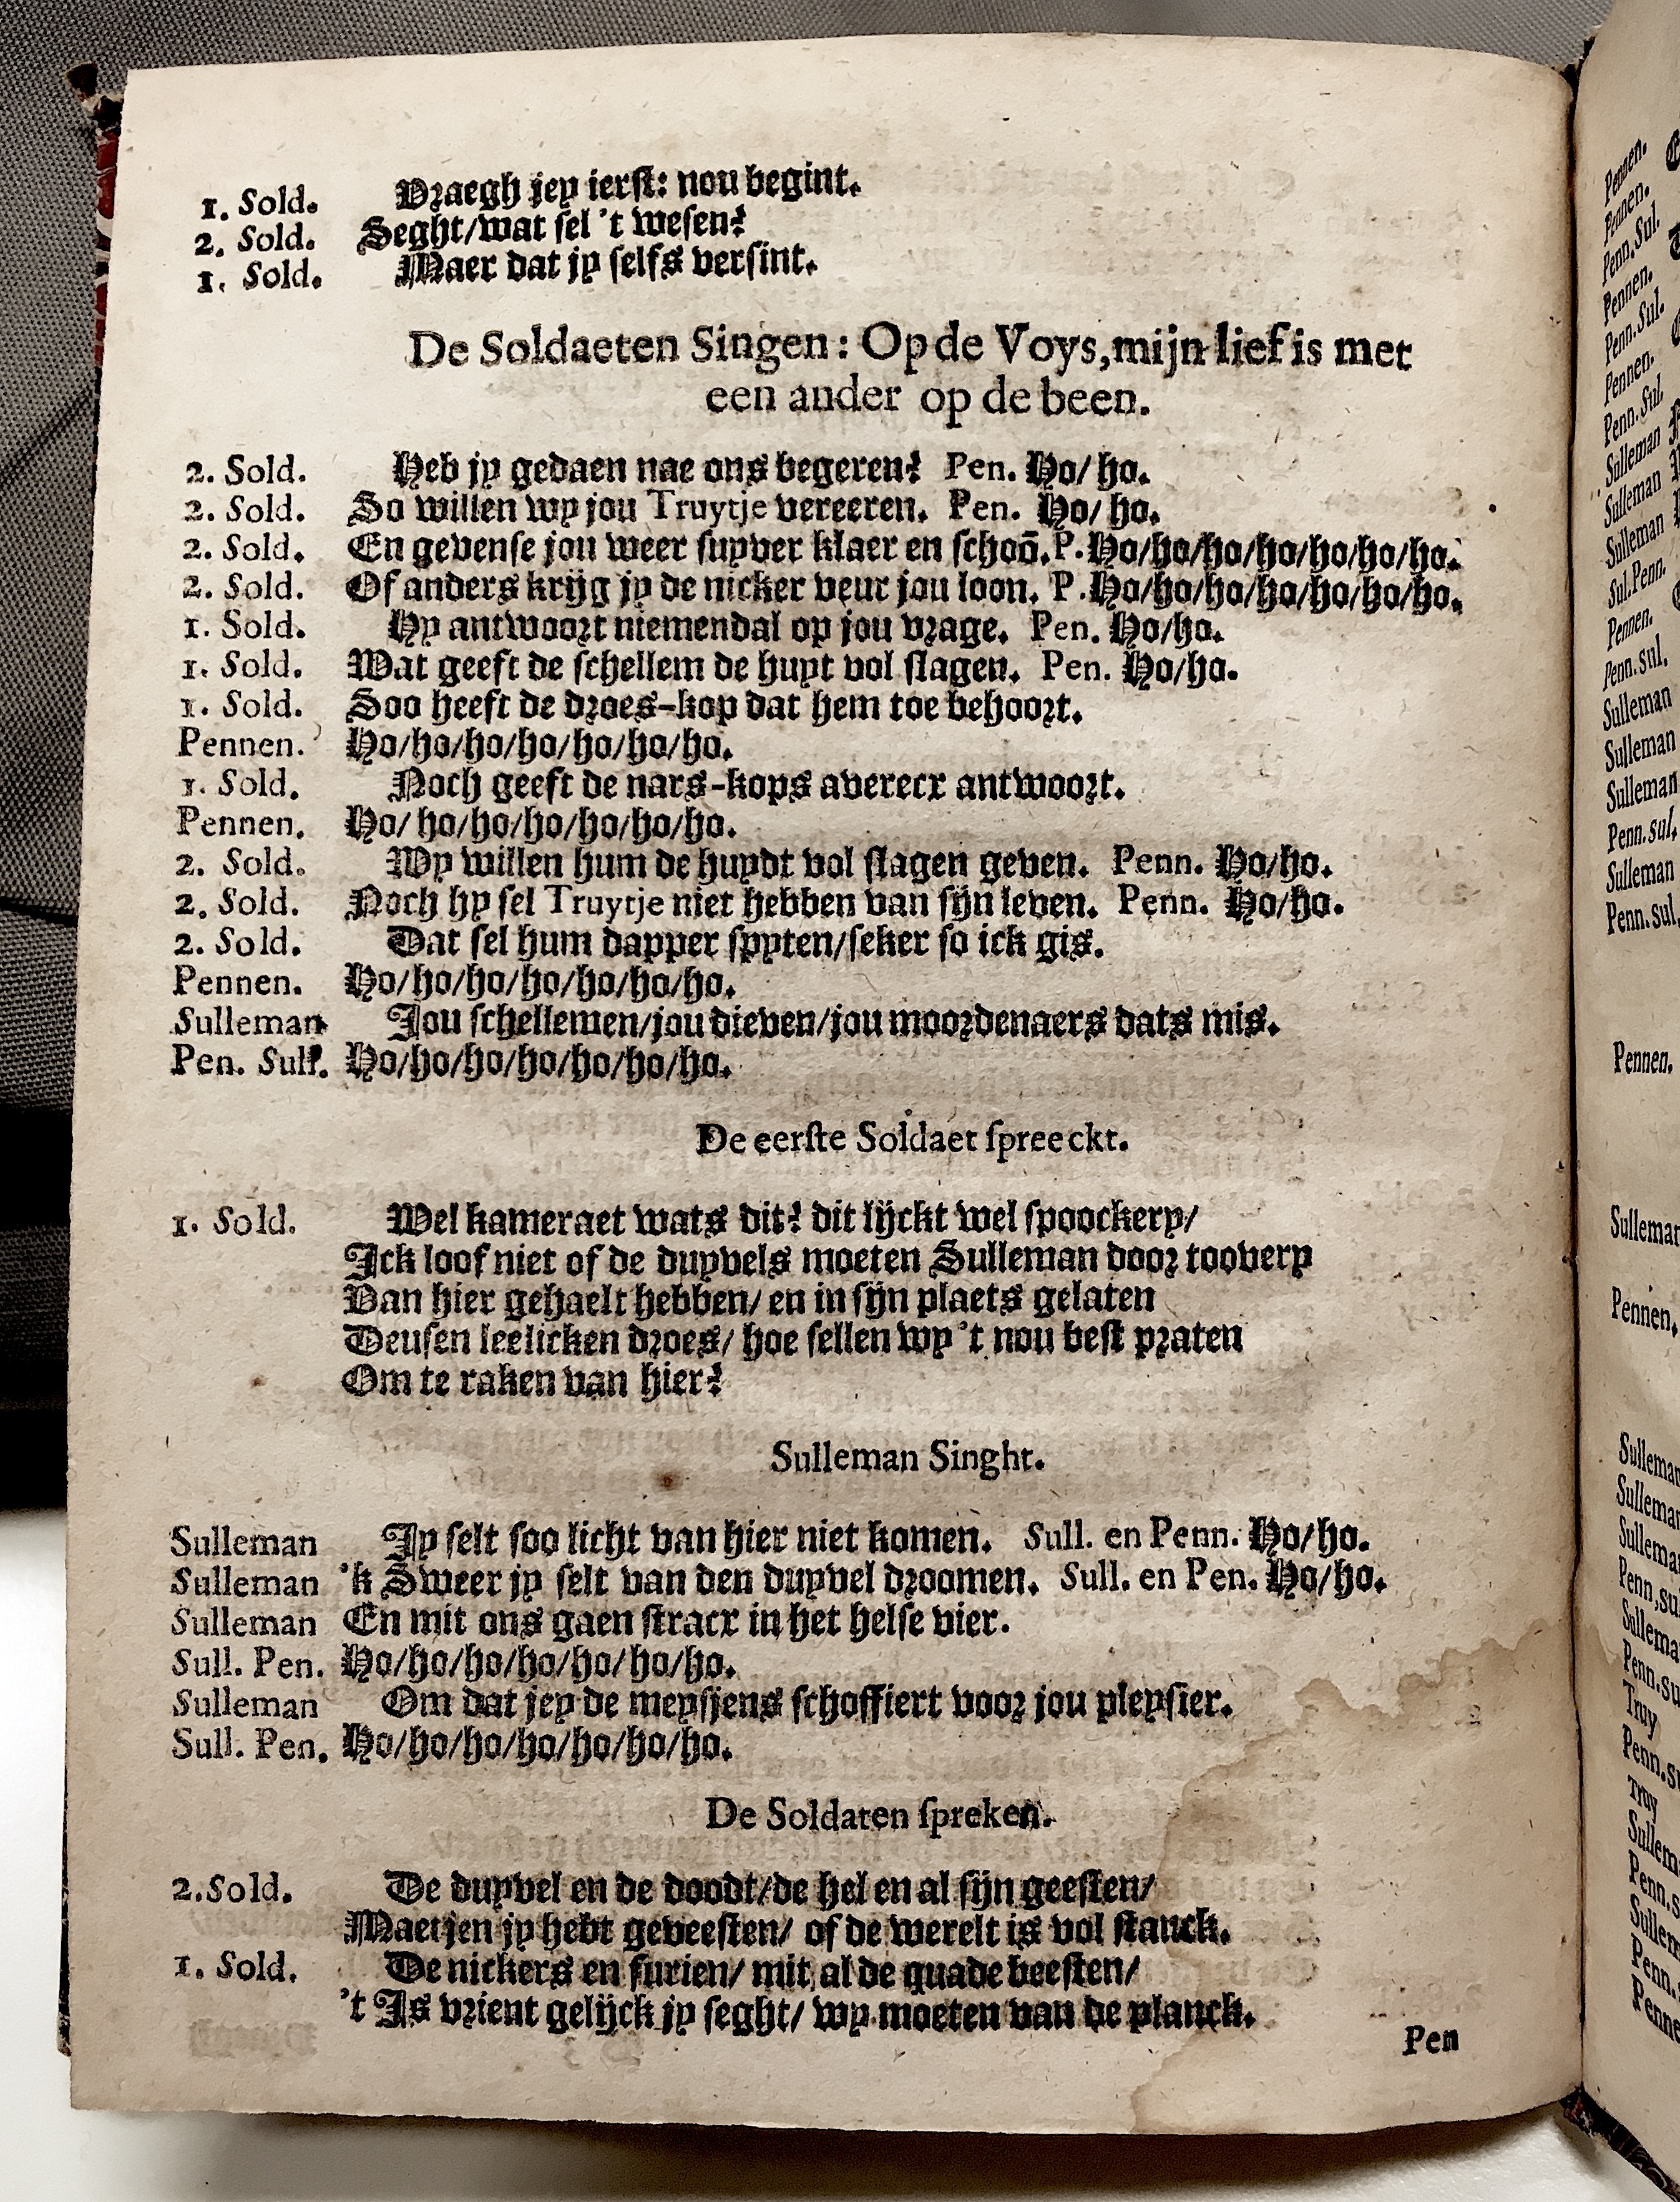 1. Sold. Vraegh jey ierst: nou begint.
2. Sold. Seght/wat sel 't wesen?
1. Sold. Maer dat jy selfs versint.
De Soldaeten Singen: Op de Voys, mijn lief is met
een ander op de been.
2. Sold. Heb jy gedaen nae ons begeren? Pen. Ho/ ho.
2. Sold. So willen wy jou Truytje vereeren. Pen. Ho/ ho.
2. Sold. En gevense jou weer suyver klaer en schoō. P. Ho/ho/ho/ho/ho/ho/ho.
2. Sold. Of anders krijg jy de nicker veur jou loon. P. Ho/ho/ho/ho/ho/ho/ho.
1. Sold. Hy antwoort niemendal op jou vrage. Pen. Ho/ho.
1. Sold. Wat geeft de schellem de huyt vol slagen. Pen. Ho/ho.
1. Sold. Soo heeft de droes-kop dat hem toe behoort.
Pennen. Ho/ho/ho/ho/ho/ho/ho.
1. Sold. Noch geeft de nars-kops averecx antwoort.
Pennen. Ho/ ho/ho/ho/ho/ho/ho.
2. Sold. Wy willen hum de huydt vol slagen geven. Penn. Ho/ho.
2. Sold. Noch hy sel Truytje niet hebben van sijn leven. Penn. Ho/ho.
2. Sold. Dat sel hum dapper spyten/seker so ick gis.
Pennen. Ho/ho/ho/ho/ho/ho/ho.
Sulleman Jou schellemen/jou dieven/jou moordenaers dats mis.
Pen. Sull. Ho/ho/ho/ho/ho/ho/ho.
De eerste Soldaet spreeckt.
1. Sold. Wel kameraet wats dit? dit lijckt wel spoockery/
Ick loof niet of de duyvels moeten Sulleman door toovery
Van hier gehaelt hebben/ en in sijn plaets gelaten
Deusen leelicken droes/ hoe sellen wy 't nou best praten
Om te raken van hier?
Sulleman Singht.
Sulleman Jy selt soo licht van hier niet komen. Sull. en Penn. Ho/ho.
Sulleman 'k Sweer jy selt van den duyvel droomen. Sull. en Pen. Ho/ho.
Sulleman En mit ons gaen stracx in het helse vier.
Sull. Pen. Ho/ho/ho/ho/ho/ho/ho.
Sulleman Om dat jey de meysjens schoffiert voor jou pleysier.
Sull. Pen. Ho/ho/ho/ho/ho/ho/ho.
De Soldaten spreken.
2. Sold. De duyvel en de doodt/de hel en al sijn geesten/
Maetjen jy hebt geveesten/ of de werelt is vol stanck.
1. Sold. De nickers en furien/ mit al de quade beesten/
't Is vrient gelijck jy seght/ wy moeten van de planck.
Pen
Pennen.
Pennen.
Penn. Sul.
Pennen.
Penn. Sul.
Pennen.
Penn. Sul.
Sulleman
Sulleman
Sulleman
Sul. Penn.
Pennen.
Penn. sul.
Sulleman
Sulleman
Sulleman
Penn. sul.
Sulleman
Penn. sul.
Pennen.
Sulleman
Pennen.
Truy
Truy